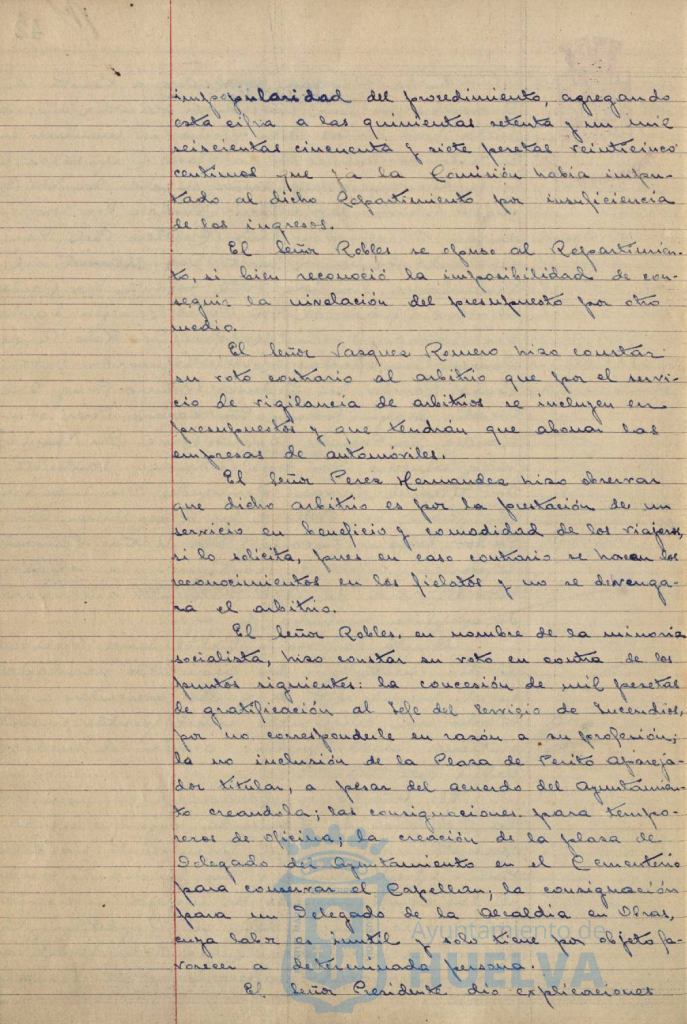 impopularidad del procedimiento, agregando
esta cifra a las quinientas setenta y un mil
seiscientas cincuenta y siete pesetas veinticinco
centimos que ya la Comisión había impu-
tado al dicho Repartimiento por insuficiencia
de los ingresos.
El Señor Robles se opuso al Repartimien-
to, si bien reconoció la imposibilidad de con-
seguir la nivelación del presupuesto por otro
medio.
El Señor Vazquez Romero hizo constar
su voto contrario al arbitrio que por el servi-
cio de vigilancia de arbitrios se incluyen en
presupuestos y que tendrán que abonar las
empresas de automóviles.
El Señor Perez Hernandez hizo observar
que dicho arbitrio es por la prestación de un
servicio en beneficio y comodidad de los viajeros,
si lo solicita, pues en caso contrario se hacen los
reconocimientos en los fielatos y no se devenga-
ra el arbitrio.
El Señor Robles, en nombre de la minoria
socialista, hizo constar su voto en contra de los
puntos siguientes: la concesión de mil pesetas
de gratificación al Jefe del Servicio de Incendios,
por no corresponderle en razón a su profesión;
la no inclusión de la Plaza de Perito Apareja-
dor titular, a pesar del acuerdo del Ayuntamien-
to creandola; las consignaciones para tempo-
reros de oficina; la creación de la plaza de
Delegado del Ayuntamiento en el Cementerio
para conservar el Capellan; la consignación
para un Delegado de la Alcaldia en Obras,
cuya labor es inutil y solo tiene por objeto fa-
vorecer a determinada persona.
El Señor Presidente dio explicaciones
Ayuntamiento de
HUELVA